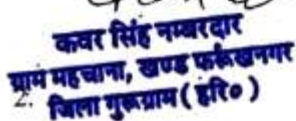 कवर सिंह नम्बरदार
ग्राम महचाना, खण्ड फर्रूखनगर
2.
जिला गुरूग्राम ( हरि० )